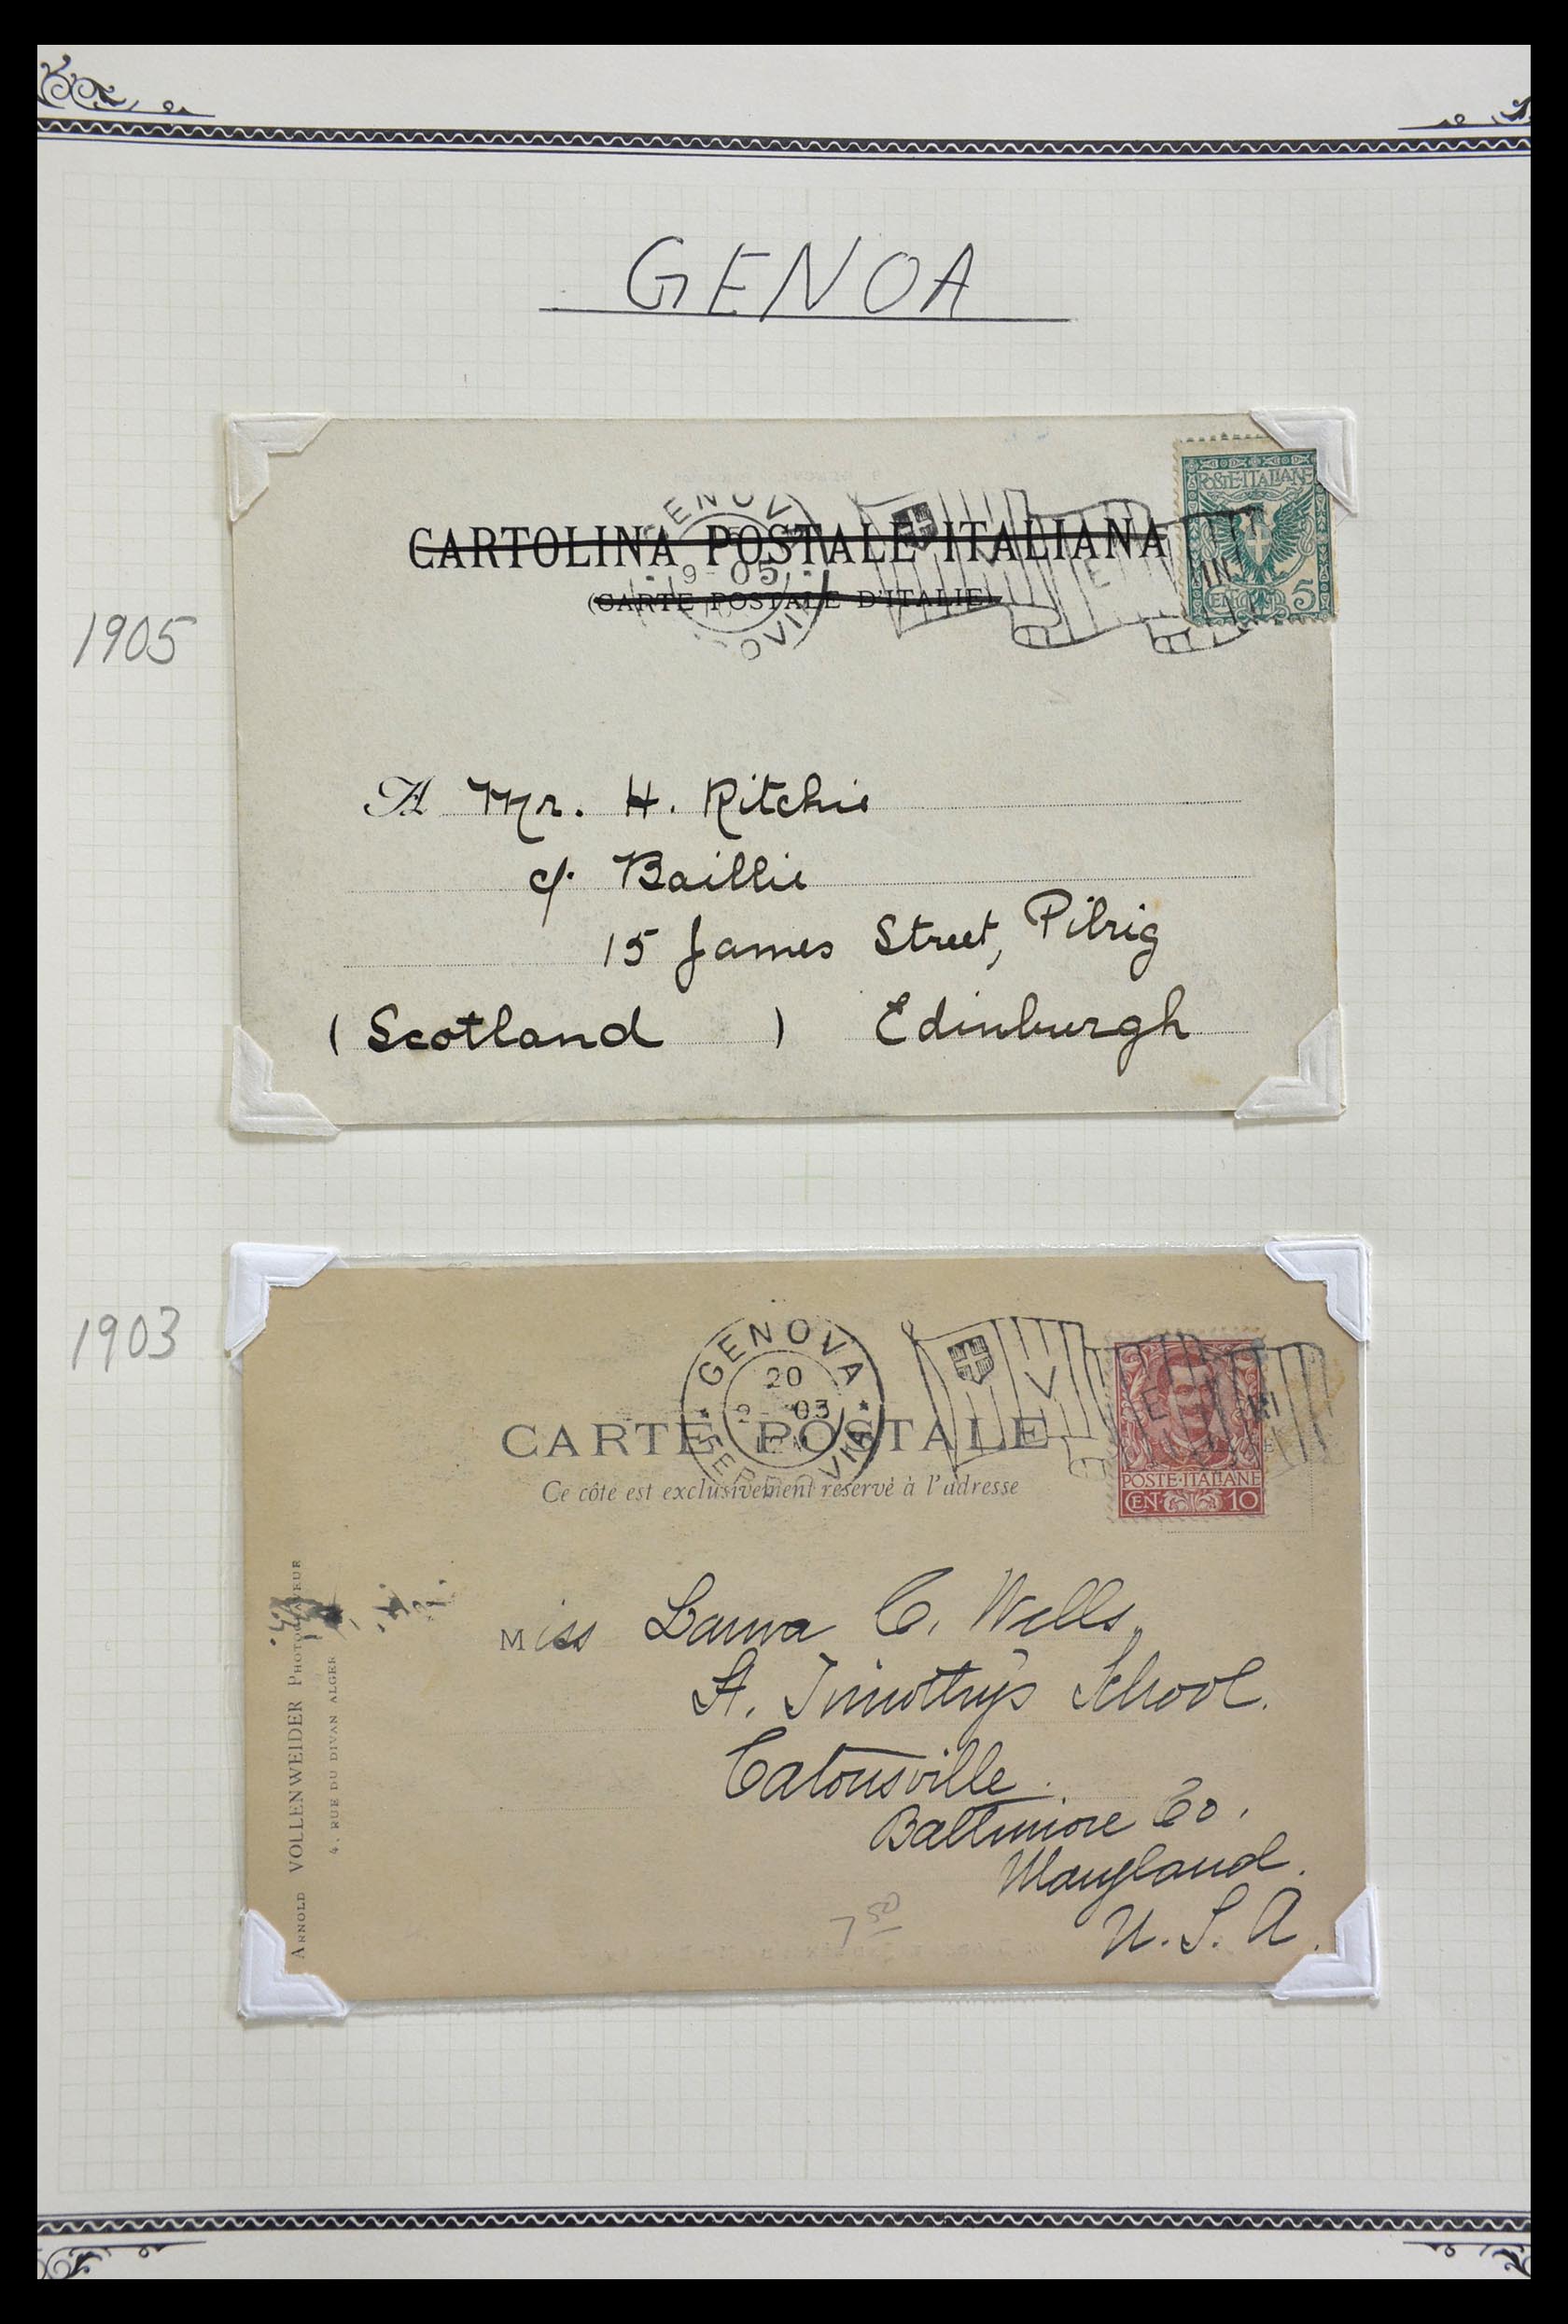 GENOA
1905
GENOVA
9-05
CARTOLINA POSTALE ITALIANA
(CARTE POSTALE D'ITALIE)
V E
POSTE·ITALIANE
CEN 5
A Mr. H. Ritchie
c/. Baillie
15 James Street, Pilrig
(Scotland) Edinburgh
1903
GENOVA
20
2- 03
V E III
CARTE POSTALE
Ce côté est exclusivement réservé à l'adresse
POSTE·ITALIANE
CEN 10
ARNOLD VOLLENWEIDER PHOTOGRAVEUR
4, RUE DU DIVAN ALGER
Miss C. Wells,
St. Timothy's School.
Catonsville.
Baltimore Co.
Maryland.
U.S.A.
7 50